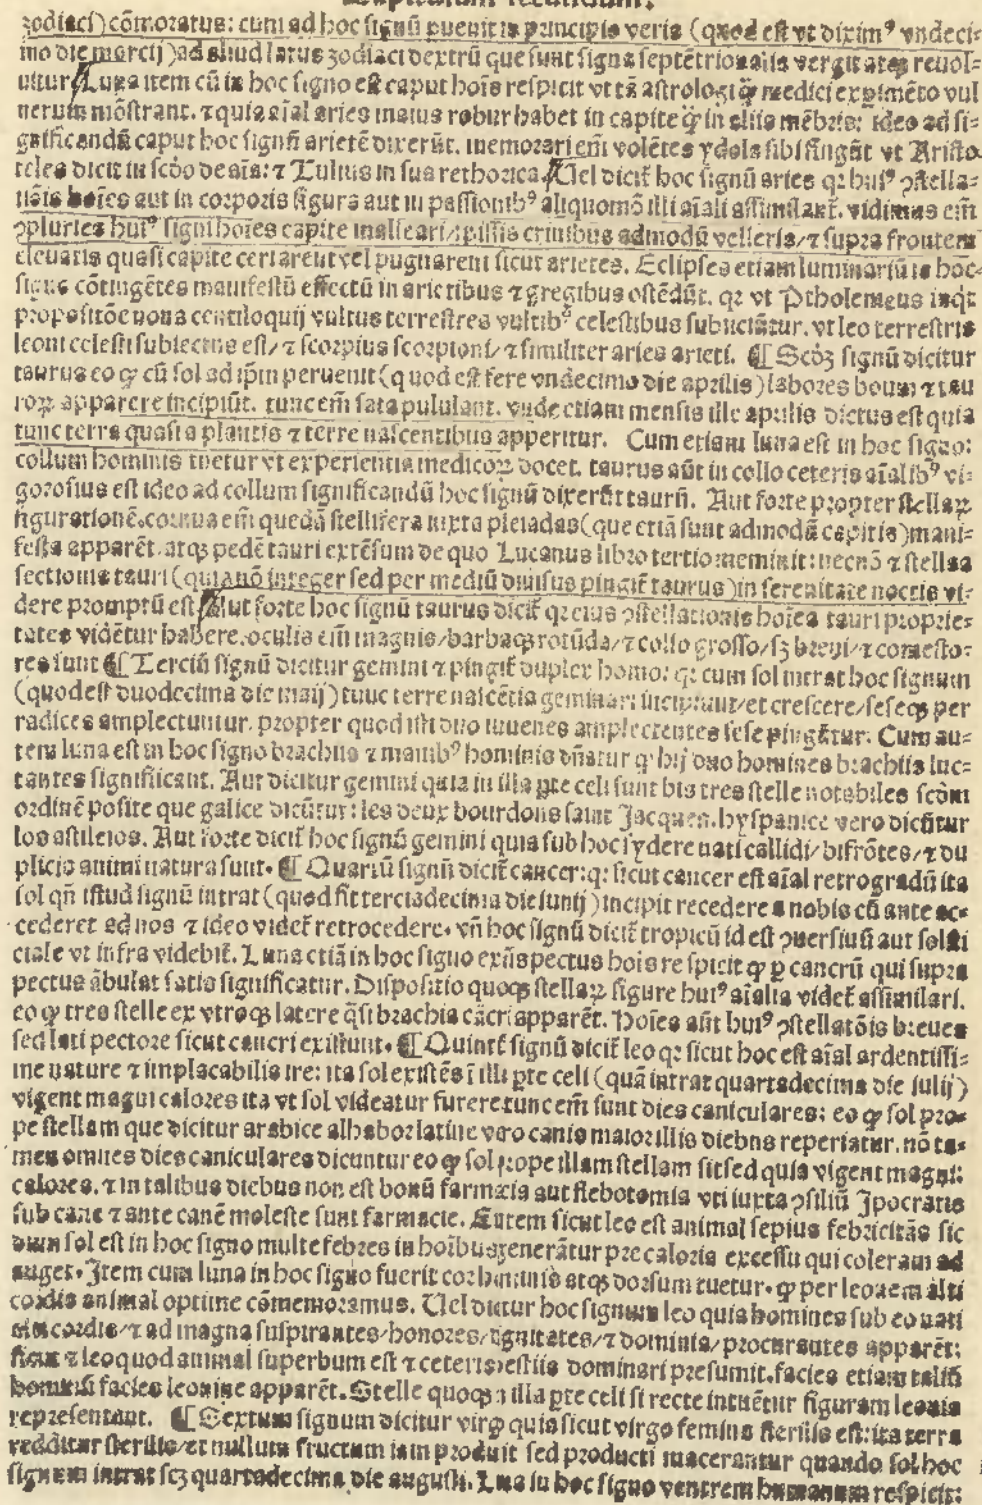 Capitulum secundum.
zodiaci) cõmoratus: cum ad hoc signũ puenit in principio veris (quod est vt diximꝰ vndeci-
mo die marcij) ad aliud latus zodiaci dextrũ que sunt signa septẽtrionalia vergit atqꝫ reuol-
uitur. Luna item cũ in hoc signo est caput hoĩs respicit vt tã astrologi q̃ medici expimẽto vul
nerum mõstrant. ⁊ quia aĩal aries maius robur habet in capite q̃ in aliis mẽbris: ideo ad si-
gnificandũ caput hoc signũ arietẽ dixerũt. memorari em̃ volẽtes ydola sibi fingũt vt Aristo
teles dicit in scďo de aĩa: ⁊ Tulius in sua rethorica. Uel dicit̃ hoc signũ aries qꝛ huiꝰ ꝯstella-
tiõis hoĩes aut in corporis figura aut in passionibꝰ aliquomõ illi aĩali assimilant̃. vidimus em̃
ꝯpluries huiꝰ signi hoĩes capite malleari/spissis crinibus admodũ velleris/⁊ supra frontem
eleuatis quasi capite certarent vel pugnarent sicut arietes. Eclipses etiam luminariũ in hoc
signo cõtingẽtes manifestũ effectũ in arietibus ⁊ gregibus ostẽdũt. qꝛ vt Ptholemeus inqt
propositõe nona centiloquij vultus terrestres vultibꝰ celestibus subiiciũtur. vt leo terrestris
leoni celesti subiectus est/⁊ scorpius scorpioni/⁊ similiter aries arieti. ¶ Scďꝫ signũ dicitur
taurus eo ꝙ cũ sol ad ipm̃ peruenit (quod est fere vndecimo die aprilis) labores boum ⁊ tau
roꝝ apparere incipiũt. tunc em̃ sata pululant. vnde etiam mensis ille aprilis dictus est quia
tunc terra quasi a plantis ⁊ terre nascentibus apperitur. Cum etiam luna est in hoc signo:
collum hominis tuetur vt experientia medicoꝝ docet. taurus aũt in collo ceteris aĩalibꝰ vi-
gorosius est ideo ad collum significandũ hoc signũ dixerũt taurũ. Aut forte propter stellaꝝ
figurationẽ. cornua em̃ quedã stellifera iuxta pleiadas (que etiã sunt admodũ capitis) mani-
festa apparẽt. atqꝫ pedẽ tauri extẽsum de quo Lucanus libro tertio meminit: necnõ ⁊ stellas
sectionis tauri (quia nõ integer sed per mediũ diuisus pingit̃ taurus) in serenitate noctis vi-
dere promptũ est. Aut forte hoc signũ taurus dicit̃ qꝛ eius ꝯstellationis hoĩes tauri proprie-
tates vidẽtur habere. oculis em̃ magnis/barbaqꝫ rotũda/⁊ collo grosso/sꝫ breui/⁊ comesto-
res sunt. ¶ Terciũ signũ dicitur gemini ⁊ pingit̃ duplex homo: qꝛ cum sol intrat hoc signum
(quod est duodecima die maij) tunc terre nascẽtia geminari incipiunt/et crescere/seseqꝫ per
radices amplectuntur. propter quod isti duo iuuenes amplectentes sese pingũtur. Cum au-
tem luna est in hoc signo brachiis ⁊ manibꝰ hominis dñatur qꝛ hij duo homines brachiis luc-
tantes significant. Aut dicitur gemini quia in illa pte celi sunt bis tres stelle notabiles scďm
ordinẽ posite que galice dicũtur: les deux bourdons saint Jacques. hyspanice vero dicũtur
los astileios. Aut forte dicit̃ hoc signũ gemini quia sub hoc sydere nati callidi/bifrõtes/⁊ du
plicis animi natura sunt. ¶ Quartũ signũ dicit̃ cancer: qꝛ sicut cancer est aĩal retrogradũ ita
sol qñ istud signũ intrat (quod fit terciadecima die iunij) incipit recedere a nobis cũ ante ac-
cederet ad nos ⁊ ideo videt̃ retrocedere. vñ hoc signũ dicit̃ tropicũ id est ꝯuersiuũ aut solsti
ciale vt infra videbit̃. Luna etiã in hoc signo exñs pectus hoĩs respicit ꝙ ꝑ cancrũ qui supra
pectus ãbulat satis significatur. Dispositio quoqꝫ stellaꝝ figure huiꝰ aĩalis videt̃ assimilari.
eo ꝙ tres stelle ex vtroqꝫ latere q̃si brachia cãcri apparẽt. Hoĩes aũt huiꝰ ꝯstellatõis breues
sed lati pectore sicut cancri existunt. ¶ Quintũ signũ dicit̃ leo qꝛ sicut hoc est aĩal ardentissi-
me nature ⁊ implacabilis ire: ita sol existẽs ĩ illa pte celi (quã intrat quartadecima die iulij)
vigent magni calores ita vt sol videatur furere. tunc em̃ sunt dies caniculares: eo ꝙ sol pro-
pe stellam que dicitur arabice alhabor latine vero canis maior illis diebus reperiatur. nõ ta-
men omnes dies caniculares dicuntur eo ꝙ sol prope illam stellam sit sed quia vigent magni
calores. ⁊ in talibus diebus non est bonũ farmacia aut flebotomia vti iuxta ꝯsiliũ Ipocratis
sub cane ⁊ ante canẽ moleste sunt farmacie. Autem sicut leo est animal sepius febricitãs sic
dum sol est in hoc signo multe febres in hoĩbus generãtur pre caloris excessu qui coleram ad
auget. Item cum luna in hoc signo fuerit cor hominis atqꝫ dorsum tuetur. ꝙ per leonem alti
cordis animal optime cõmemoramus. Uel dicitur hoc signum leo quia homines sub eo nati
alti cordis/⁊ ad magna suspirantes/honores/dignitates/⁊ dominia/procurantes apparẽt:
sicut ⁊ leo quod animal superbum est ⁊ ceteris bestiis dominari presumit. facies etiam taliũ
hominũ facies leonine apparẽt. Stelle quoqꝫ ĩ illa pte celi si recte intuẽtur figuram leonis
representant. ¶ Sextum signum dicitur virgo quia sicut virgo femina sterilis est: ita terra
redditur sterilis/et nullum fructum iam producit sed producti macerantur quando sol hoc
signum intrat scꝫ quartadecima die augusti. Luna in hoc signo ventrem humanum respicit: